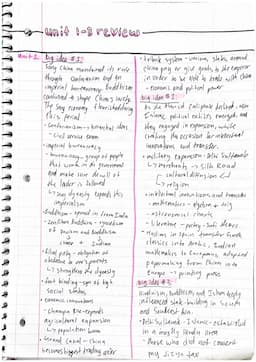 unit 1-2 review
Unit 1:
Big idea #1:
Song China maintained its rule
through Confucianism and an
imperial bureaucracy. Buddhism
continued to shape China's society.
The Song economy flourished during
this period
- Confucianism - hierarchical ideas
- civil service exam
- imperial bureaucracy
- bureaucracy - group of people
that work in the government
and make sure the will of
the leader is followed
↳ Song dynasty expands this
imperialism
- Buddhism - spread in from India
of Daoism and Buddhism
↓ ↓
China + Indian
- filial piety - obligation of
↳ strengthens the dynasty
- foot binding - sign of high
social status
- economic innovations
- Champa Rice - expands
agricultural expansion
↳ population boom
- Grand Canal - China
becomes biggest trading center
- tribute system - various states around
China pay or give goods to the emperor
in order to be able to trade with China
- economic and political power
Big idea #2:
As the Abbasid Caliphate
Islamic political entities emerged, and
they engaged in expansion, while
innovations and transfer.
- military expansion - Delhi Sultanate
↳ merchants → Silk Road
↳ cultural diffusion
↳ religion
- intellectual innovations and transfer
- mathematics - algebra + trig
- astronomical charts
- literature - poetry - Sufi
- Muslims in Spain transfer Greek
classics into Arabic, Indian
mathematics to Europeans, adopted
papermaking from China into
Europe → printing press
Big idea #3:
Hinduism, Buddhism, and Islam
influenced state-building in South
and Southeast Asia.
- Delhi Sultanate - Islamic - established
in a mostly Hindu area
- Those who did not convert
pay jizya tax